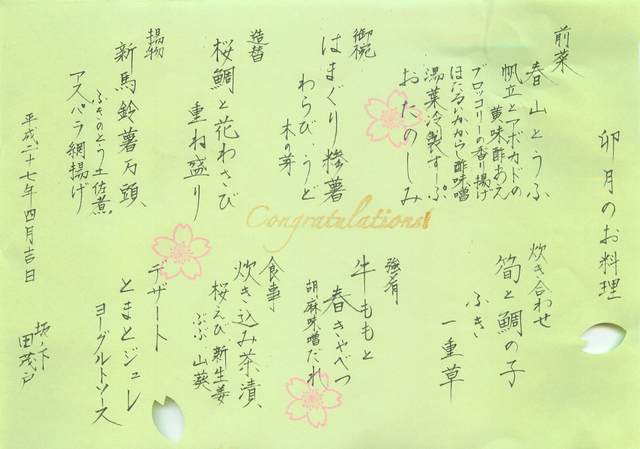 卯月のお料理
前菜
春山とうふ
帆立とアボカドの
黄味酢あえ
ブロッコリーの香り揚げ
ほたるいかからし酢味噌
湯葉冷製すーぷ
おたのしみ
御椀
はまぐり糝薯
わらび、うど
木の芽
造替
桜鯛と花わさび
重ね盛り
揚物
新馬鈴薯万頭、
ふきのとう土佐煮、
アスパラ網揚げ
炊き合わせ
筍と鯛の子
ふき
一重草
強肴
牛ももと
春きゃべつ
胡麻味噌だれ
食事
炊き込み茶漬
桜えび 新生姜
ぶぶ 山葵
デザート
とまとジュレ
ヨーグルトソース
平成二十七年四月吉日
坂ノ下
田茂戸
Congratulations!